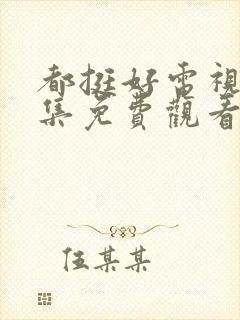 都挺好電視
集免費觀看
伍某某